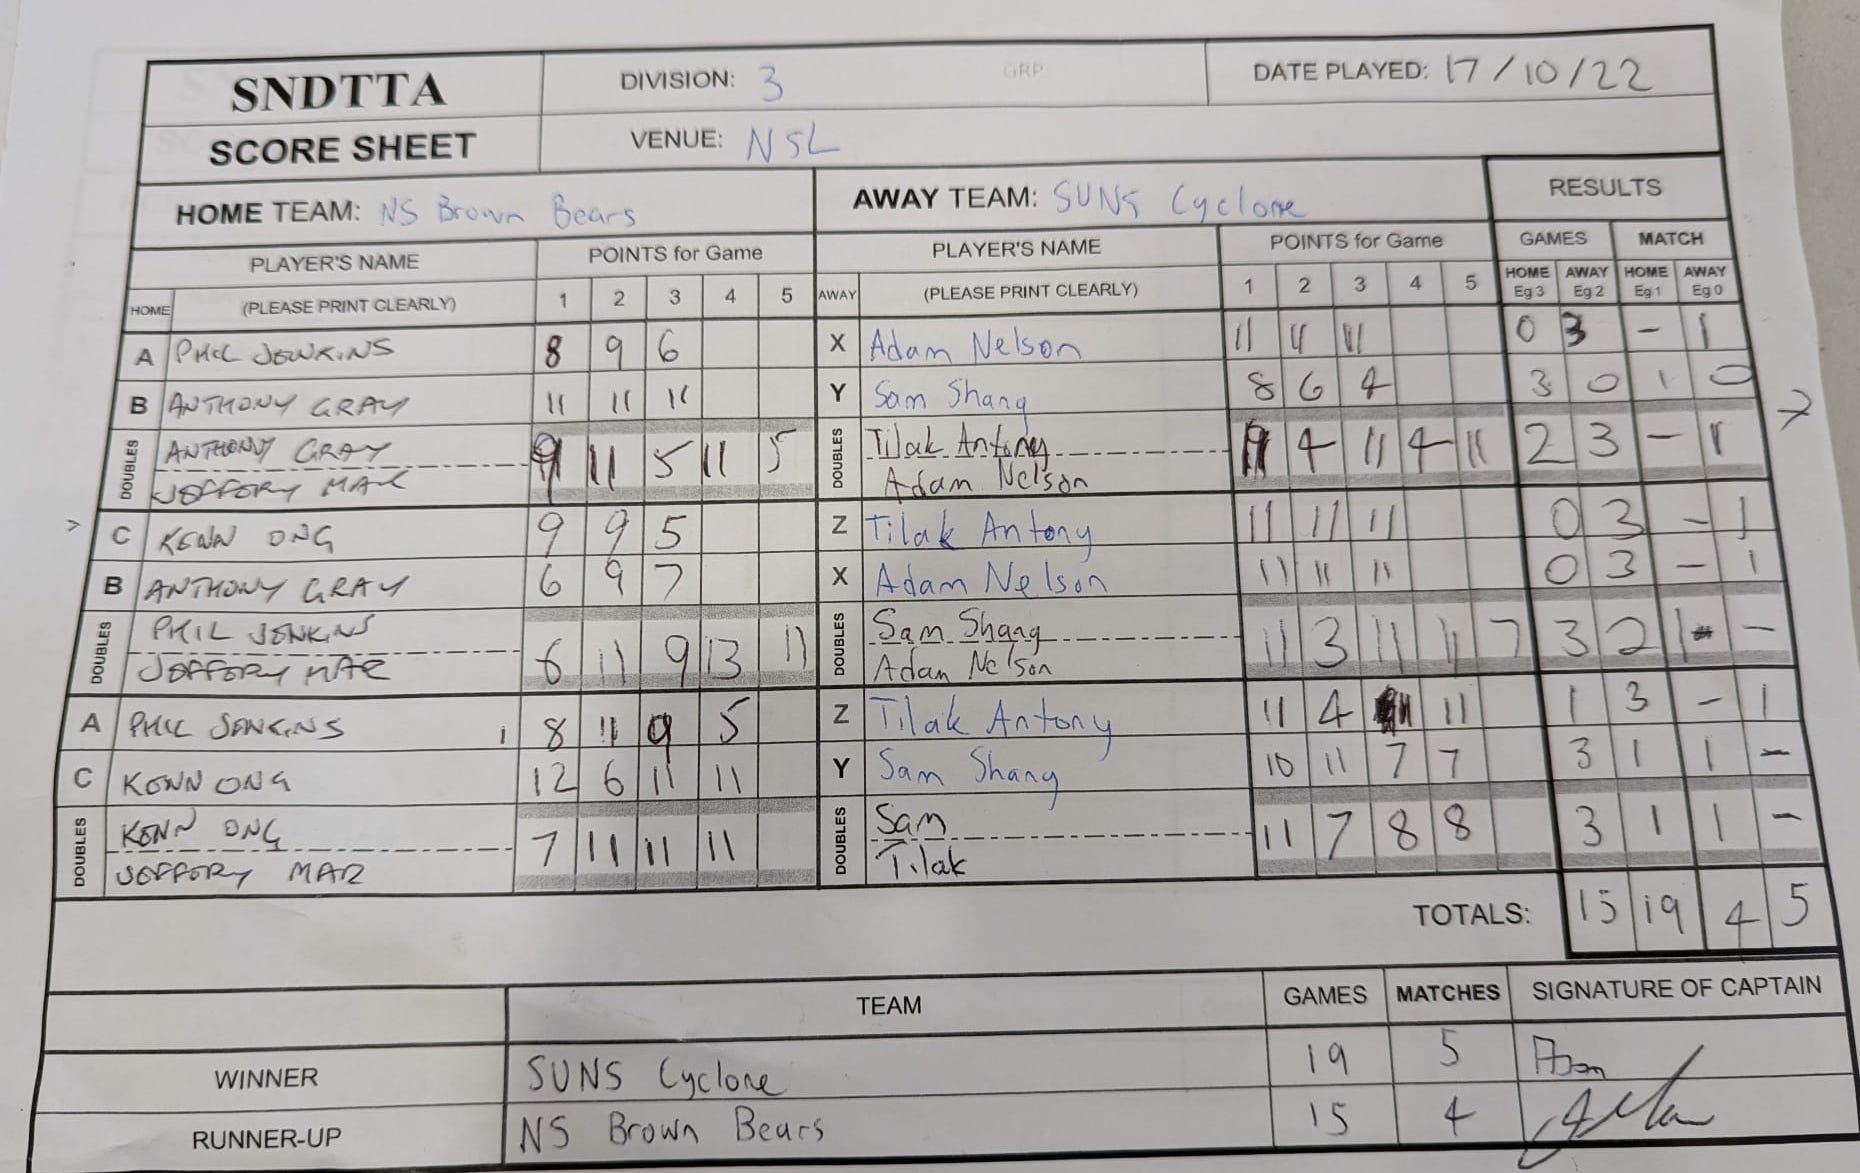 SNDTTA DIVISION: 3 GRP DATE PLAYED: 17/10/22
SCORE SHEET VENUE: NSL
HOME TEAM: NS Brown Bears AWAY TEAM: SUNS Cyclone RESULTS
PLAYER'S NAME POINTS for Game PLAYER'S NAME POINTS for Game GAMES MATCH
HOME (PLEASE PRINT CLEARLY) 1 2 3 4 5 AWAY (PLEASE PRINT CLEARLY) 1 2 3 4 5 HOME Eg 3 AWAY Eg 2 HOME Eg 1 AWAY Eg 0
A PHIL JENKINS 8 9 6 X Adam Nelson 11 11 11 0 3 - 1
B ANTHONY GRAY 11 11 11 Y Sam Shang 8 6 4 3 0 1 0
DOUBLES ANTHONY GRAY 9 11 5 11 5 DOUBLES Tilak Antony 11 4 11 4 11 2 3 - 1
JEFFORY MAR Adam Nelson
C KENN ONG 9 9 5 Z Tilak Antony 11 11 11 0 3 - 1
B ANTHONY GRAY 6 9 7 X Adam Nelson 11 11 11 0 3 - 1
DOUBLES PHIL JENKINS 6 11 9 13 11 DOUBLES Sam Shang 11 3 11 11 7 3 2 1 -
JEFFORY MAR Adam Nelson
A PHIL JENKINS 8 11 9 5 Z Tilak Antony 11 4 11 11 1 3 - 1
C KENN ONG 12 6 11 11 Y Sam Shang 10 11 7 7 3 1 1 -
DOUBLES KENN ONG 7 11 11 11 DOUBLES Sam 11 7 8 8 3 1 1 -
JEFFORY MAR Tilak
TOTALS: 15 19 4 5
TEAM GAMES MATCHES SIGNATURE OF CAPTAIN
WINNER SUNS Cyclone 19 5 Adam
RUNNER-UP NS Brown Bears 15 4